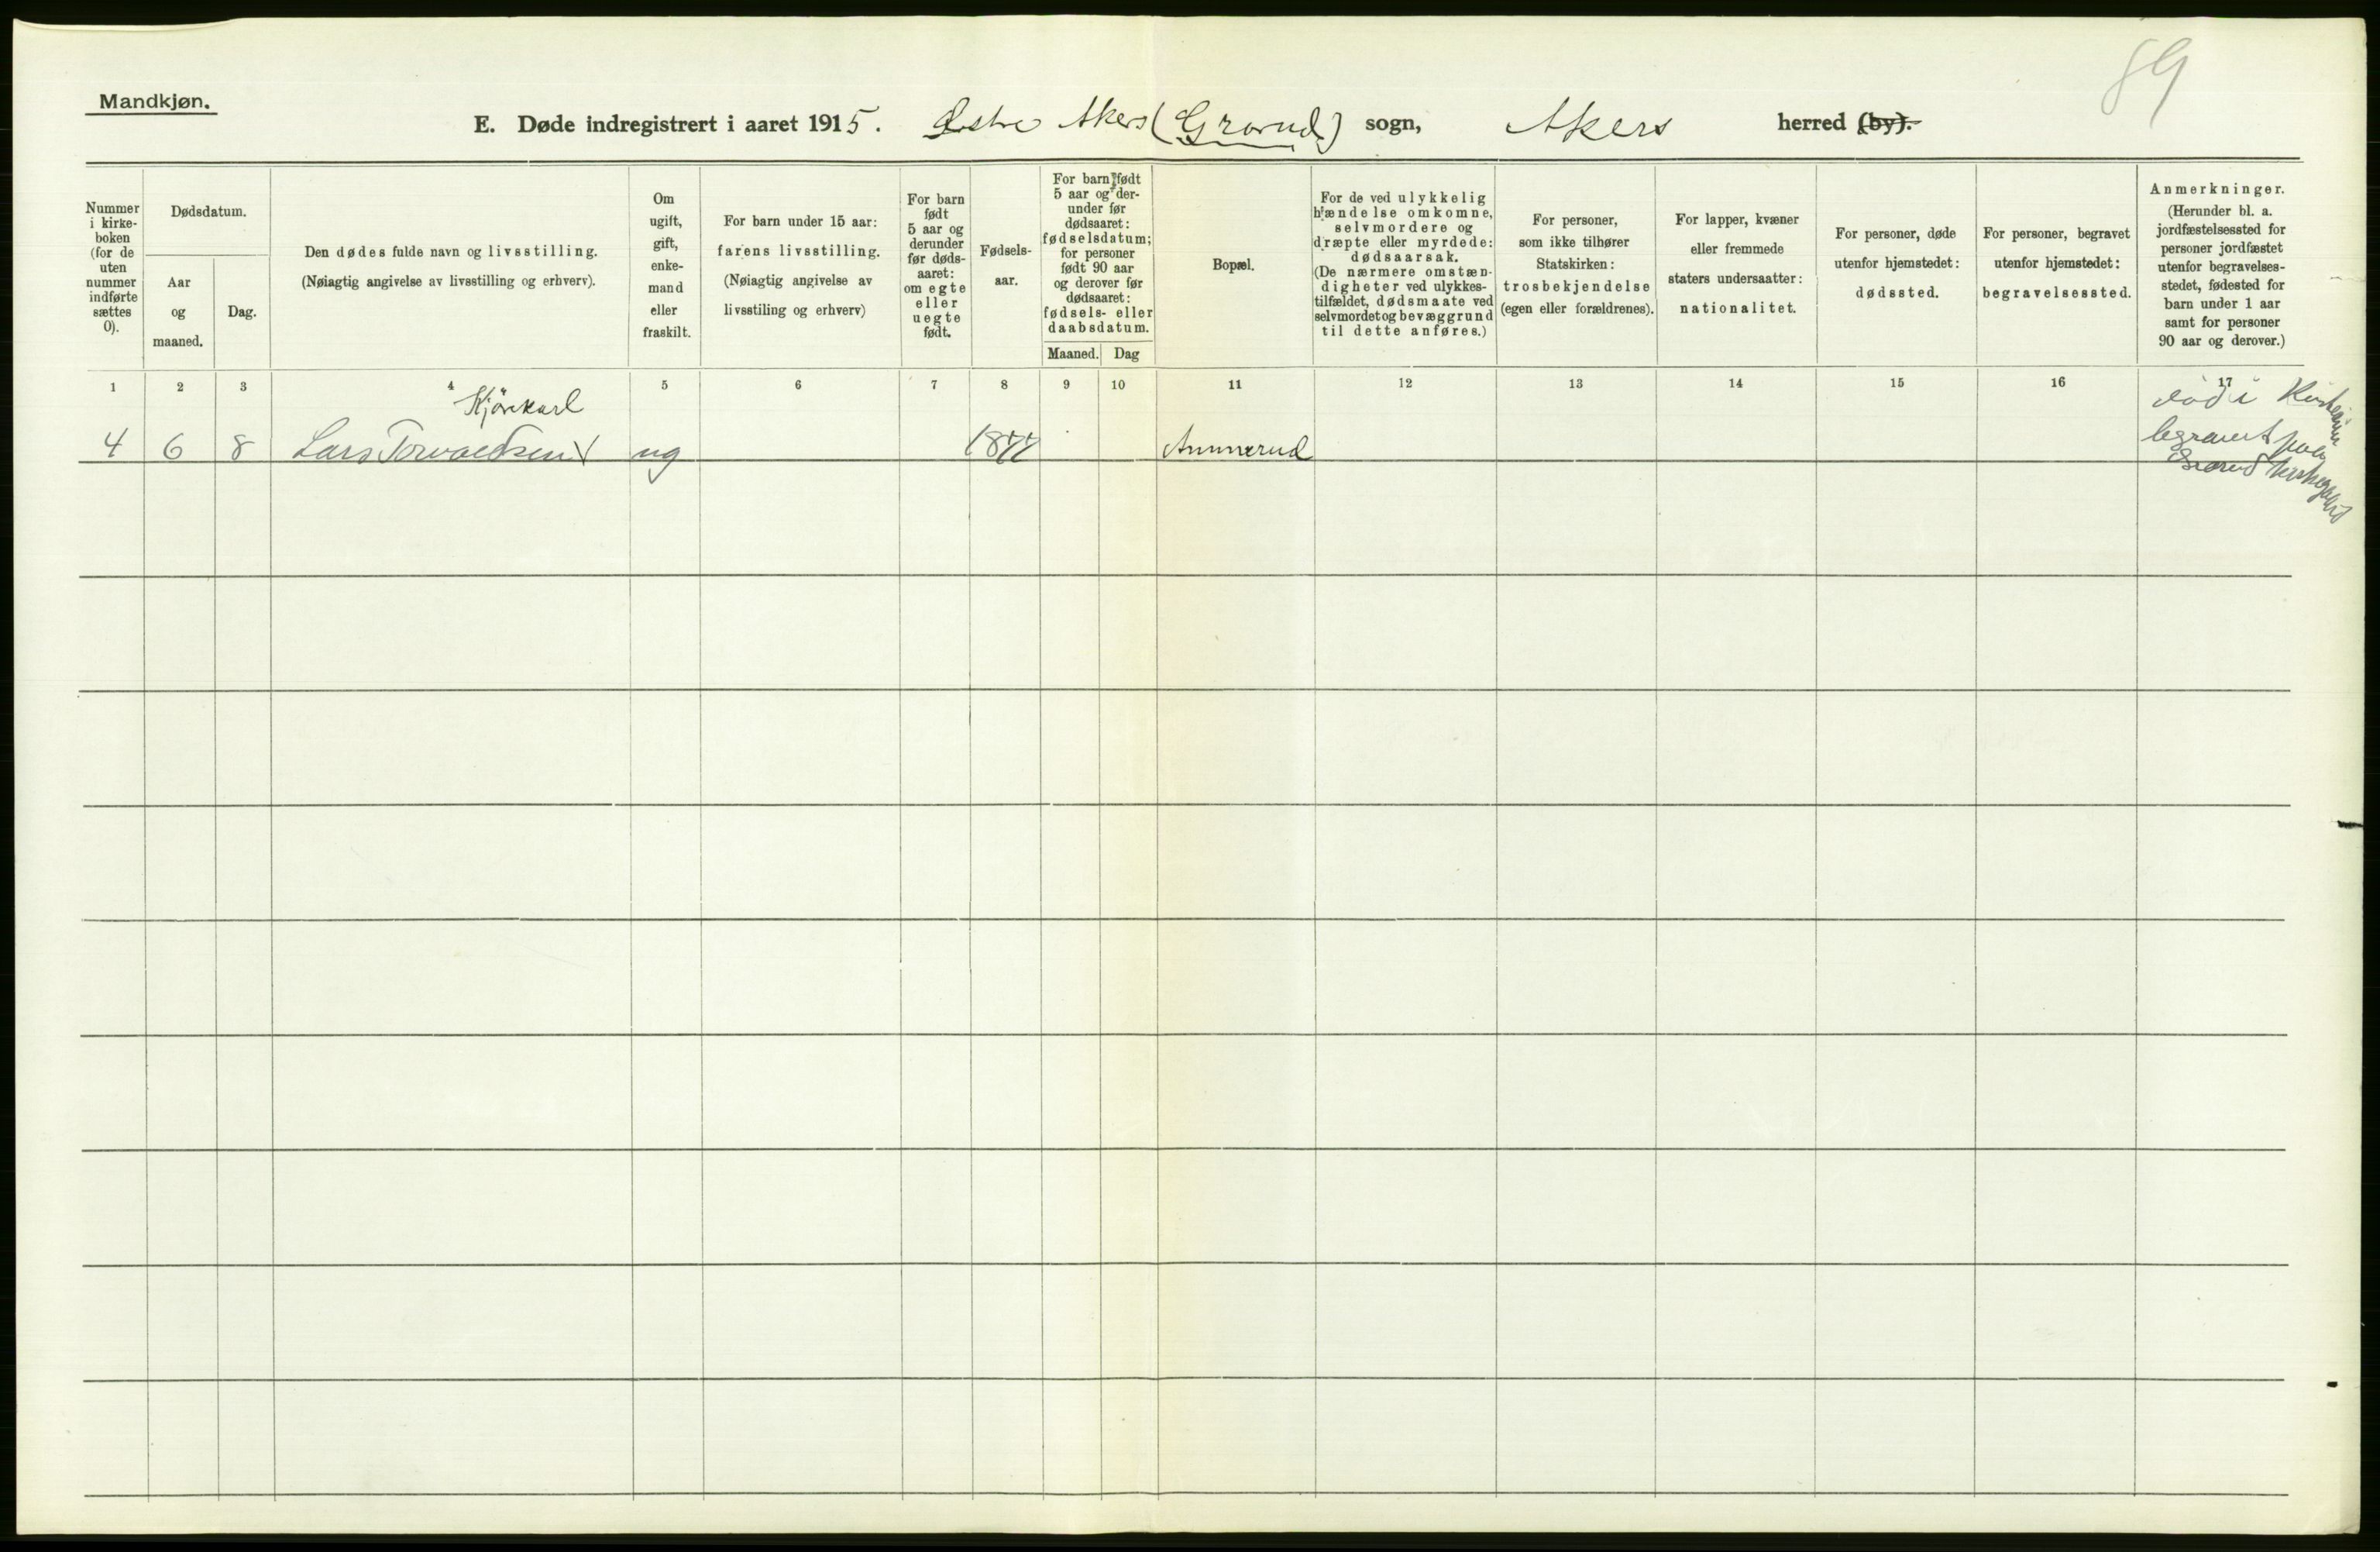 89
Mandkjøn.
E. Døde indregistrert i aaret 1915. Østre Akers (Grorud) sogn, Akers herred (by).
Nummer
i kirke-
boken
(for de
uten
nummer
indførte
sættes
0).
Dødsdatum.
Aar
og
maaned.
Dag.
Den dødes fulde navn og livsstilling.
(Nøiagtig angivelse av livsstilling og erhverv).
Om
ugift,
gift,
enke-
mand
eller
fraskilt.
For barn under 15 aar:
farens livsstilling.
(Nøiagtig angivelse av
livsstiling og erhverv)
For barn
født
5 aar og
derunder
før døds-
aaret:
om egte
eller
uegte
født.
Fødsels-
aar.
For barn født
5 aar og der-
under før
dødsaaret:
fødselsdatum;
for personer
født 90 aar
og derover før
dødsaaret:
fødsels- eller
daabsdatum.
Maaned. Dag
Bopæl.
For de ved ulykkelig
hændelse omkomne,
selvmordere og
dræpte eller myrdede:
dødsaarsak.
(De nærmere omstæn-
digheter ved ulykkes-
tilfældet, dødsmaate ved
selvmordet og bevæggrund
til dette anføres.)
For personer,
som ikke tilhører
Statskirken:
trosbekjendelse
(egen eller forældrenes).
For lapper, kvæner
eller fremmede
staters undersaatter:
nationalitet.
For personer, døde
utenfor hjemstedet:
dødssted.
For personer, begravet
utenfor hjemstedet:
begravelsessted.
Anmerkninger.
(Herunder bl. a.
jordfæstelsessted for
personer jordfæstet
utenfor begravelses-
stedet, fødested for
barn under 1 aar
samt for personer
90 aar og derover.)
1 2 3 4 5 6 7 8 9 10 11 12 13 14 15 16 17
Kjørekarl
4 6 8 Lars Torvaldsen ug 1877 Ammerud
død i
begravet paa
Grorud Kirkegaard